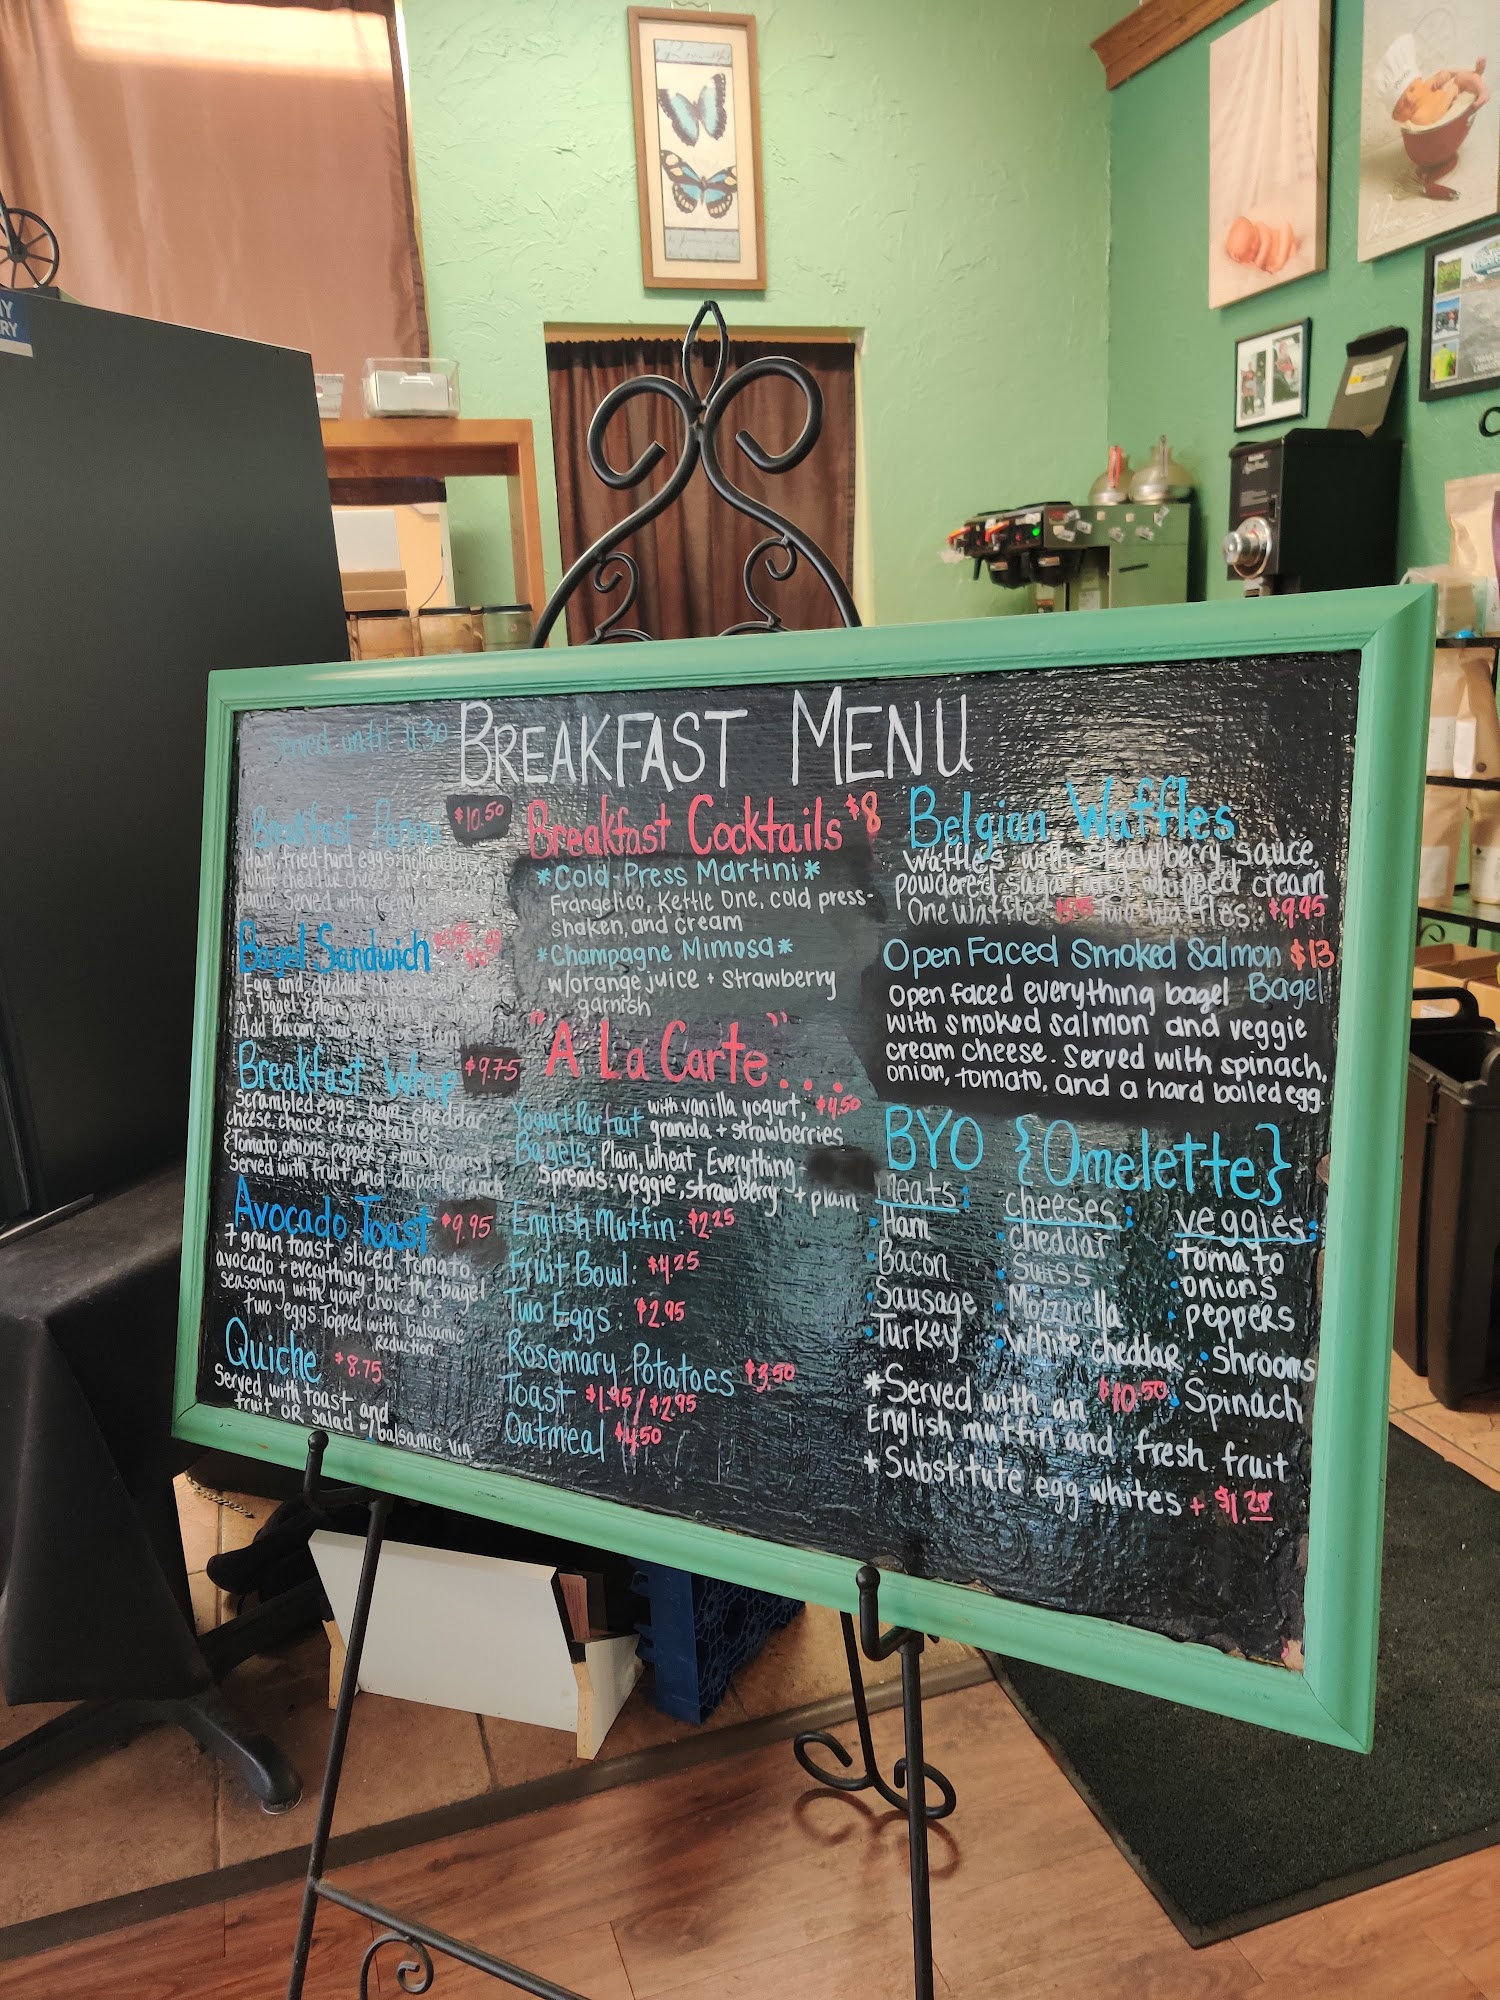 Served until 11:30
BREAKFAST MENU
Breakfast Panini $10.50
Ham, fried hard eggs, hollandaise
white cheddar cheese
panini. Served with
Bagel Sandwich
Egg and cheddar cheese
Add Bacon, Sausage, or Ham
Breakfast Wrap $9.75
Scrambled eggs, ham, cheddar
cheese, choice of vegetables
{Tomato, onions, peppers + mushrooms}
Served with fruit and chipotle ranch
Avocado Toast $9.95
7 grain toast, sliced tomato,
avocado + everything-but-the-bagel
seasoning with your choice of
two eggs. Topped with balsamic
Reduction
Quiche $8.75
Served with toast and
fruit OR salad w/balsamic vin.
Breakfast Cocktails $8
*Cold-Press Martini*
Frangelico, Kettle One, cold press-
shaken, and cream
*Champagne Mimosa*
w/orange juice + strawberry
garnish
"A La Carte"...
Yogurt Parfait with vanilla yogurt, $4.50
granola + strawberries
Bagels: Plain, Wheat, Everything -
Spreads: veggie, strawberry + plain
English Muffin: $2.25
Fruit Bowl: $4.25
Two Eggs: $2.95
Rosemary Potatoes $3.50
Toast $1.95/$2.95
Oatmeal $4.50
Belgian Waffles
Waffles with strawberry sauce,
powdered sugar and whipped cream
One Waffle Two Waffles: $9.95
Open Faced Smoked Salmon $13
Bagel
Open faced everything bagel
with smoked salmon and veggie
cream cheese. Served with spinach,
onion, tomato, and a hard boiled egg.
BYO {Omelette}
meats:
Ham
Bacon
Sausage
Turkey
cheeses:
cheddar
Swiss
Mozzarella
White cheddar
veggies:
tomato
onions
peppers
shrooms
Spinach
*Served with an $10.50
English muffin and fresh fruit
*Substitute egg whites + $1.25